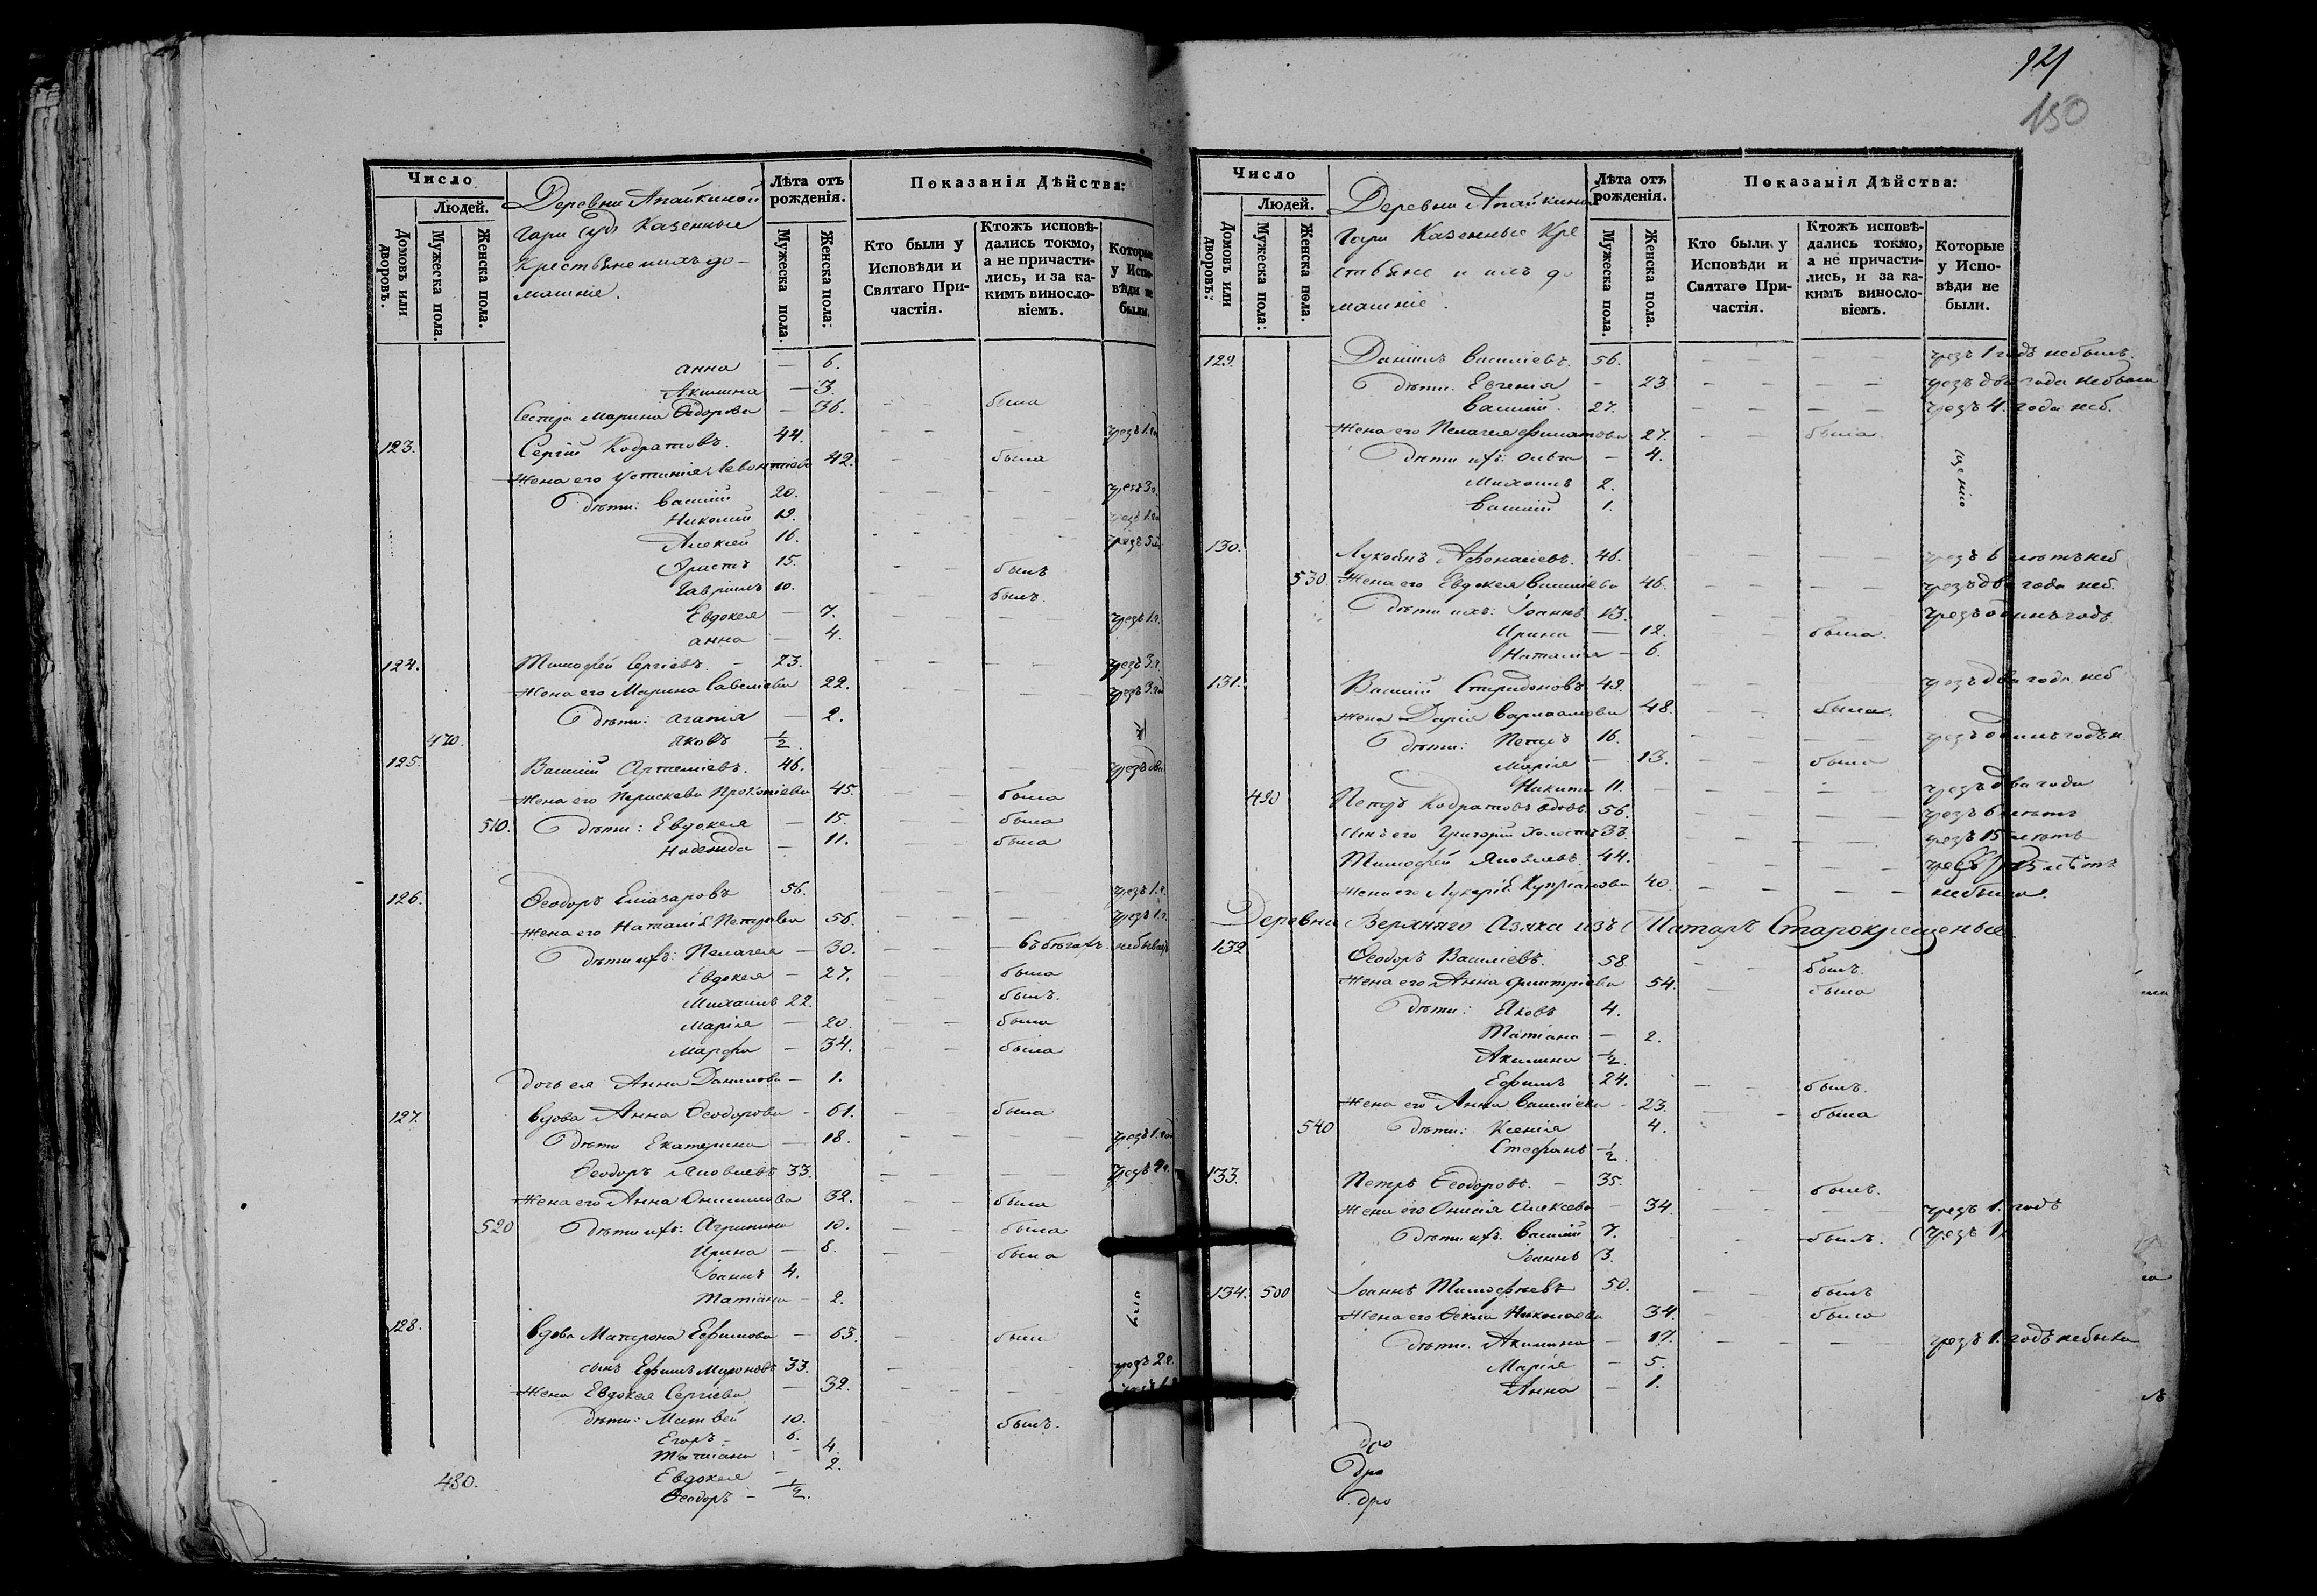 Число
Людей.
Домовъ или дворовъ.
Мужеска пола.
Женска пола.
Деревни Апайкиной
Гари Казенные
Крестьяне и ихъ до-
машніе.
Лѣта отъ рожденія.
Мужеска пола.
Женска пола.
Показанія Дѣйства:
Кто были у Исповѣди и Святаго Причастія.
Ктожъ исповѣдались токмо, а не причастились, и за какимъ винословіемъ.
Которые у Исповѣди не были.
анна — 6.
Акилина — 3.
Сестра Марина Ѳедорова — 36. — — была
123. Сергій Кодратовъ. 44. — — — чрезъ 1.
Жена его Устинія Левонтіева 42. — — была
Дѣти: Василій 20. — — — — чрезъ 3 г.
Николай 19. — — — — чрезъ 1.
Алексей 16. — — — — чрезъ 5
15. — — былъ
Гавріилъ 10. — — былъ.
Евдокея — 7. — — — — чрезъ 1. г.
анна — 4.
124. Тимофей Сергіевъ. — 23. — — — — чрезъ 3. г.
Жена его Марина Савеліева 22. — — — чрезъ 3. год
Дѣти: Агапія — 2.
470. Яковъ 1/2.
125. Василій Артеміевъ. 46. — — — чрезъ два
Жена его Параскева Прокопіева 45. — — была
510. Дѣти: Евдокея — 15. — — была
Надежда — 11. — — была
126. Ѳеодоръ Елиазаровъ 56. — — — — чрезъ 1. г.
Жена его Наталія Петрова 56. — — — чрезъ 1. г.
Дѣти ихъ: Пелагея — 30. — — въ бѣгахъ.
Евдокея — 27. — — была
Михаилъ 22. — — былъ.
Марія — 20. — — была
Марфа — 34. — — была
дочь ея Анна Данилова — 1.
127. Вдова Анна Ѳеодорова — 61. — — была
Дѣти Екатерина — 18. — — — — чрезъ 1. год
Ѳеодоръ Яковлевъ 33. — — — — чрезъ 4 г.
Жена его Анна Онисимова 32. — — была
520 Дѣти ихъ: Агрипина 10. — — была
Ирина — 8. — — была
Іоаннъ 4.
Татіана — 2.
128. Вдова Матрона Ефимова — 63. — была
сынъ Ефимъ Мироновъ 33. — — чрезъ 2. г.
Жена Евдокея Сергіева — 32. — — — чрезъ 1
Дѣти: Матвей 10. — — былъ.
Егоръ — 6.
Татіана — 4
Евдокея — 2.
480. Ѳеодоръ — 1/2.
121
150
Число
Людей.
Домовъ или дворовъ.
Мужеска пола:
Женска пола.
Деревни Апайкиной
Гари Казенные Кре
стьяне и ихъ до
машніе.
Лѣта отъ рожденія.
Мужеска пола.
Женска пола.
Показанія Дѣйства:
Кто были у Исповѣди и Святаго Причастія.
Ктожъ исповѣдались токмо, а не причастились, и за какимъ винословіемъ.
Которые у Исповѣди не были.
129. Даніилъ Василіевъ. 56. — — — — чрезъ 1 годъ небылъ.
Дѣти. Евгенія — 23 — — — — чрезъ два года небыла
Василій. 27. — — — — чрезъ 4. года неб.
Жена его Пелагея Филатова 27. — — была.
Дѣти ихъ: Ольга — 4.
Михаилъ 2.
Василій 1.
130. Лукоянъ Афонасіевъ. 46. — — — — чрезъ 6 лѣтъ неб
530. Жена его Евдокея Василіева 46. — — — — чрезъ два года неб.
Дѣти ихъ: Іоаннъ. 13. чрезъ одинъ годъ.
Ирина — 12. — — была.
Наталія — 6.
131. Василій Спиридоновъ 49. — — — — чрезъ два года неб
Жена Дарія Варлаамова 48. — — была.
Дѣти: Петръ 16. — — — — чрезъ одинъ годъ н.
Марія — 13. — — была
Никита 11. — — — — чрезъ два года
490 Петръ Кодратовъ вдовъ. 56. — — — — чрезъ 6 лѣтъ
Сынъ его Григорій холостъ 33 — — — — чрезъ 15 лѣтъ
Тимофей Яковлевъ. 44. — — — — чрезъ 15 лѣтъ
Жена его Лукерія Купріанова 40. — — — — небыла.
Деревни Верхняго Азяка изъ Татаръ Старокрещеные
132 Ѳеодоръ Василіевъ. 58. — — былъ.
Жена его Анна Дмитріева 54. — — была
Дѣти: Яковъ 4.
Татіана — 2.
Акилина 1/2.
Ефимъ 24. — — былъ.
Жена его Анна Василіева — 23. — — была
540 Дѣти: Ксенія 4.
Стефанъ 1/2
133. Петръ Ѳеодоровъ. — 35. — — былъ.
Жена его Онисія Алексева — 34. — — — — чрезъ 1. годъ
Дѣти ихъ. Василій 7. — — былъ. (чрезъ 1
Іоаннъ 3.
134. 500 Іоаннъ Тимофеевъ 50. — — былъ
Жена его Ѳекла Николаева 34. — — была
Дѣти. Акилина — 17. — — — — чрезъ 1. годъ небыла
Марія — 5.
Анна — 1.